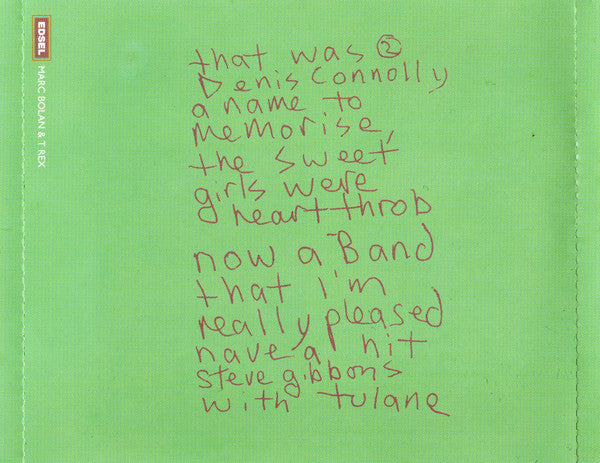 EDSEL
MARC BOLAN & T REX
that was ②
Denis Connolly
a name to
memorise,
the sweet
girls were
heart throb
now a Band
that i'm
really pleased
have a hit
steve gibbons
with tulane